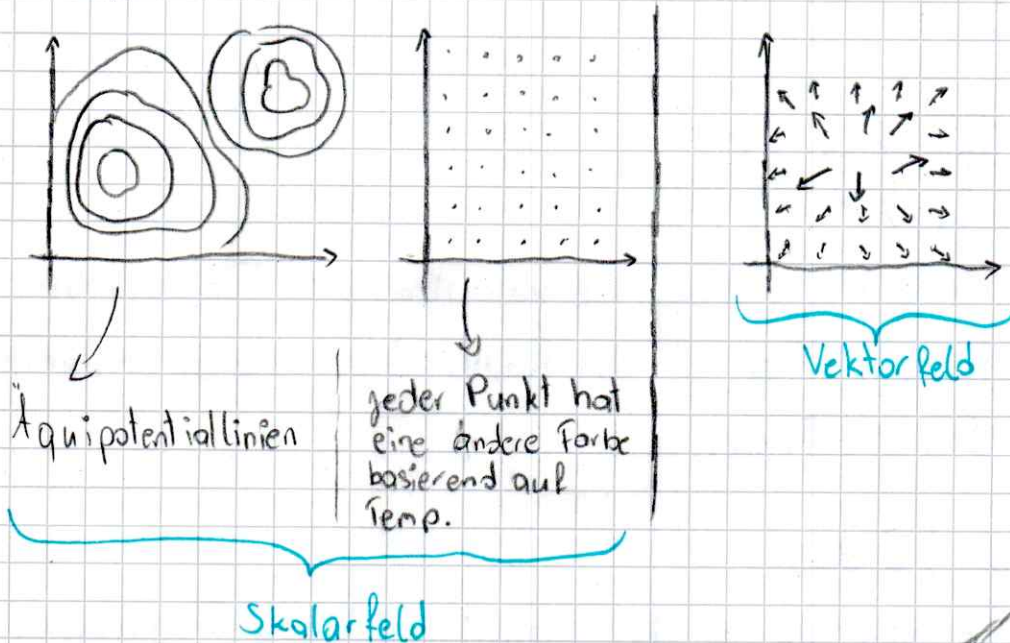 Äquipotentiallinien
jeder Punkt hat
eine andere Farbe
basierend auf
Temp.
Skalarfeld
Vektorfeld